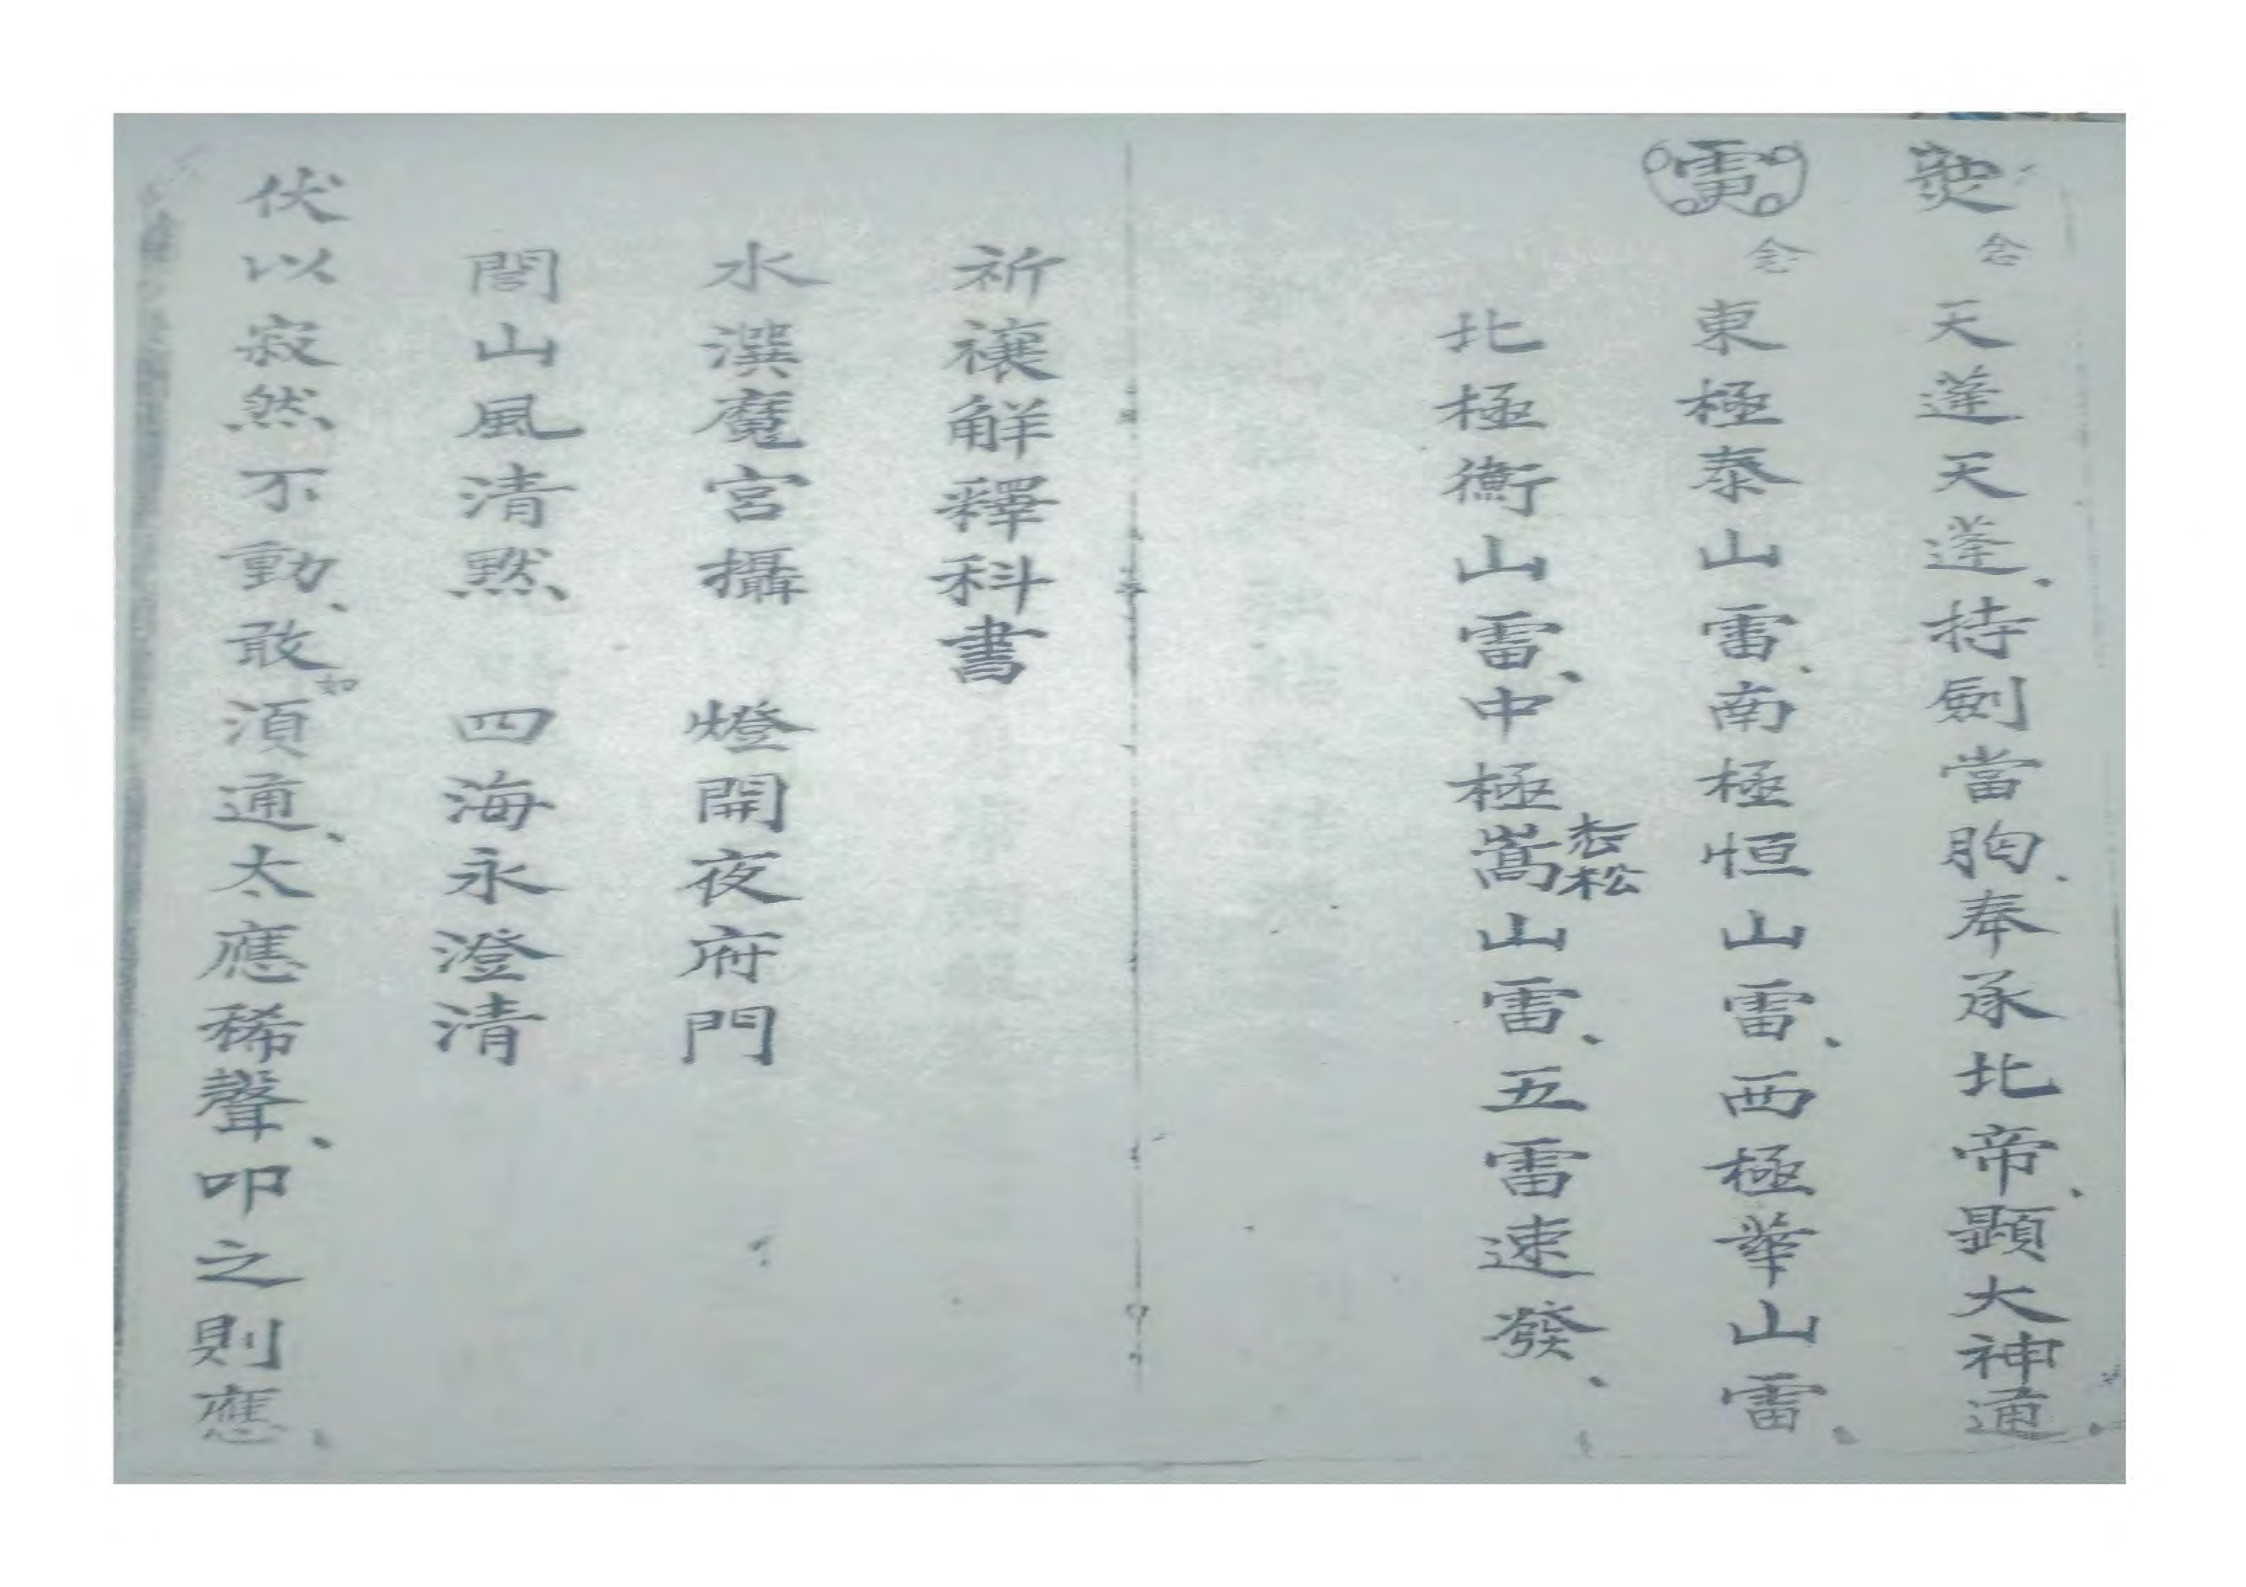 念 天蓬天蓬、持劍當胸、奉承北帝、顯大神通、
雷 念 東極泰山雷、南極恒山雷、西極華山雷、
北極衡山雷、中極嵩山雷、五雷速發、
松
祈禳解釋科書
水潠魔宮攝 燈開夜府門
閭山風清默 四海永澄清
伏以寂然不動、敢須通、太應稀聲、叩之則應、
如